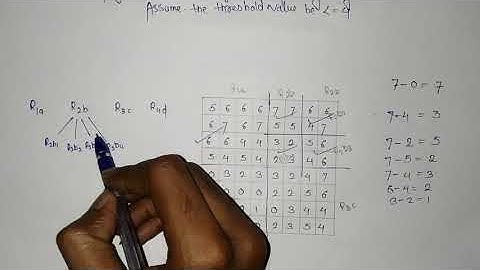 Assume the threshold value be <= 4
R1a R2b R3c R4d
R2b1 R2b2
R2b
5 6 6 6 7 7 6 6
6 7 6 7 5 5 4 7
6 6 4 4 3 2 5 6
5 4 5 4 2 3 4 6
0 3 2 3 3 2 4 7
0 0 2 2 5 6
1 0 3 4 4
0 2 3 5 4
R3c
7-0 = 7
7-4 = 3
7-2 = 5
7-5 = 2
7-4 = 3
6-4 = 2
3-2 = 1